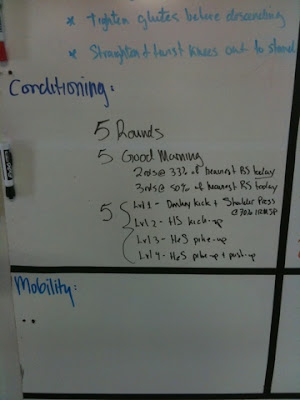 * Tighten glutes before descending
* Straighten & twist knees out to stand
Conditioning:
5 Rounds
5 Good Morning
2rds @ 33% of heaviest BS today
3rds @ 50% of heaviest BS today
5
Lvl 1 - Donkey kick + Shoulder Press
@ 70% 1RM SP
Lvl 2 - HS kick-up
Lvl 3 - HeS pike-up
Lvl 4 - HeS pike-up + push-up
Mobility: